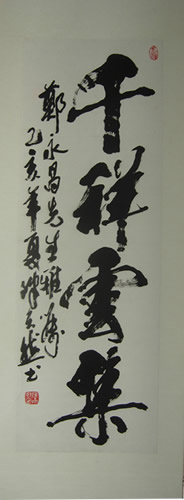 千祥雲集
鄭永昌先生雅屬
乙亥年夏
書